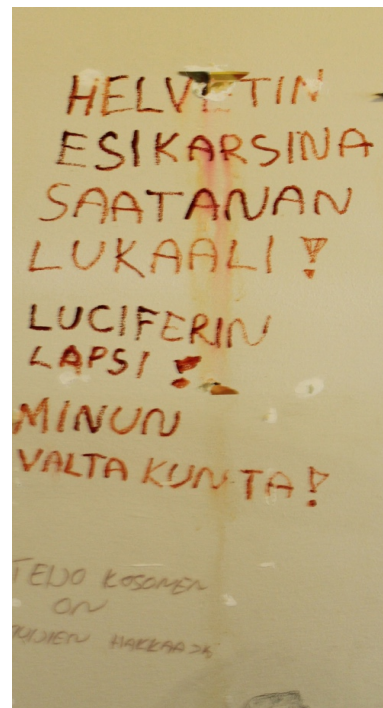 HELVETIN
ESIKARSINA
SAATANAN
LUKAALI!
LUCIFERIN
LAPSI!
MINUN
VALTA KUNTA!
TEIJO KOSONEN
ON
HAKKAAJA